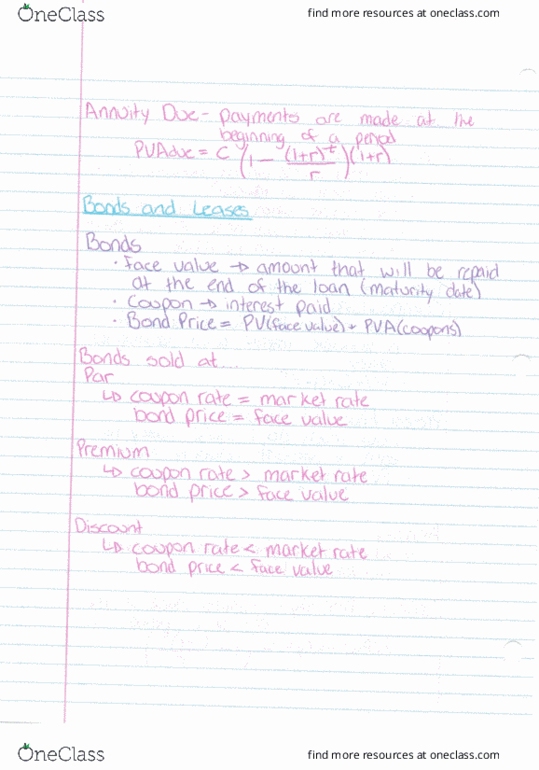 OneClass
find more resources at oneclass.com
Annuity Due - payments are made at the
beginning of a period
PVAdue = C (1 - (1+r)^-t / r)(1+r)
Bonds and Leases
Bonds
· Face value → amount that will be repaid
at the end of the loan (maturity date)
· Coupon → interest paid
· Bond Price = PV(face value) + PVA(coupons)
Bonds sold at...
Par
↳ coupon rate = market rate
bond price = face value
Premium
↳ coupon rate > market rate
bond price > face value
Discount
↳ coupon rate < market rate
bond price < face value
OneClass
find more resources at oneclass.com